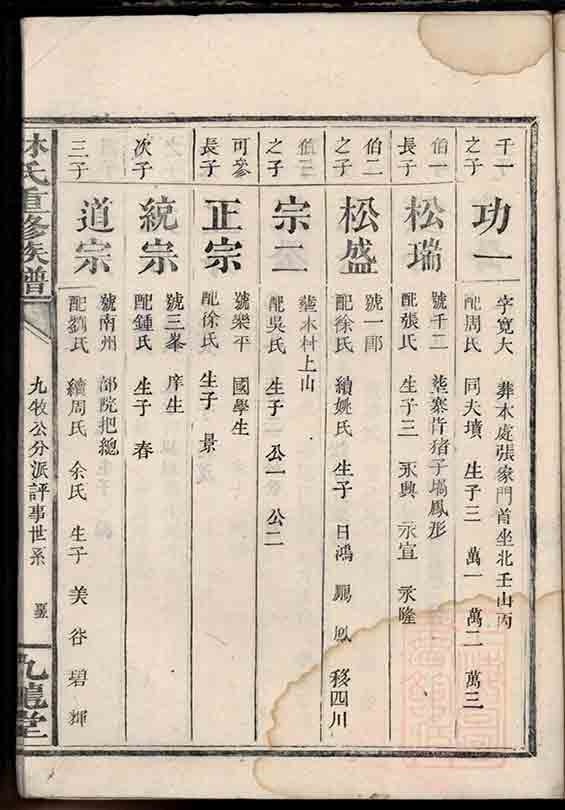 千一之子
功一
字寬大 葬本處張家門首坐北壬山丙
配周氏 同夫墳 生子三 萬一 萬二 萬三
伯一長子
松瑞
號千二 葬寨背猪子塘鳳形
配張氏 生子三 永興 永宜 永隆
伯二之子
松盛
號一郎
配徐氏 續姚氏 生子 日鴻 鳳 移四川
伯三之子
宗二
葬木村上山
配吳氏 生子 公一 公二
可參長子
正宗
號樂平 國學生
配徐氏 生子 景
次子
統宗
號三峯 庠生
配鍾氏 生子 春
三子
道宗
號南州 部院把總
配劉氏 續周氏 余氏 生子 美 谷 碧 輝
林氏重修族譜
九牧公分派評事世系
九龍堂